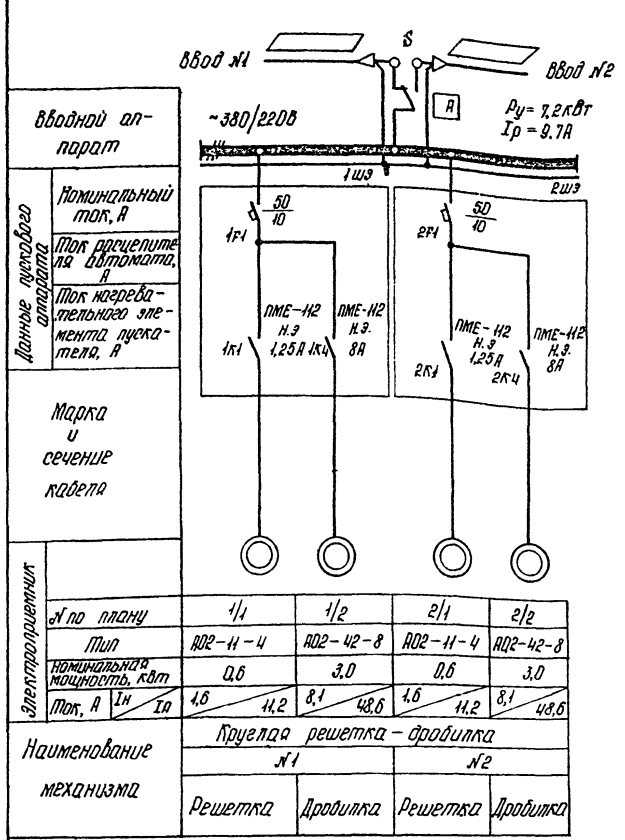 S
Ввод №1
Ввод №2
Вводной ап-
парат
~380/220В
А
Ру = 7,2кВт
Iр = 9.7А
1ШЭ
2ШЭ
Данные пускового
аппарата
Номинальный
ток, А
Ток расцепите
ля автомата,
А
Ток нагрева-
тельного эле-
мента пуска-
теля, А
1F1
50
10
2F1
50
10
ПМЕ-112
Н.Э
1,25А
1К1
ПМЕ-112
Н.Э.
8А
1К4
ПМЕ-112
Н.Э
1,25А
2К1
ПМЕ-112
Н.Э.
8А
2К4
Марка
и
сечение
кабеля
Электроприемник
N по плану 1/1 1/2 2/1 2/2
Тип АО2-11-4 АО2-42-8 АО2-11-4 АО2-42-8
Номинальная
мощность, кВт 0,6 3,0 0,6 3,0
Ток, А Iн Iп 1,6 11,2 8,1 48,6 1,6 11,2 8,1 48,6
Наименование
механизма
Круглая решетка-дробилка
№1 №2
Решетка Дробилка Решетка Дробилка